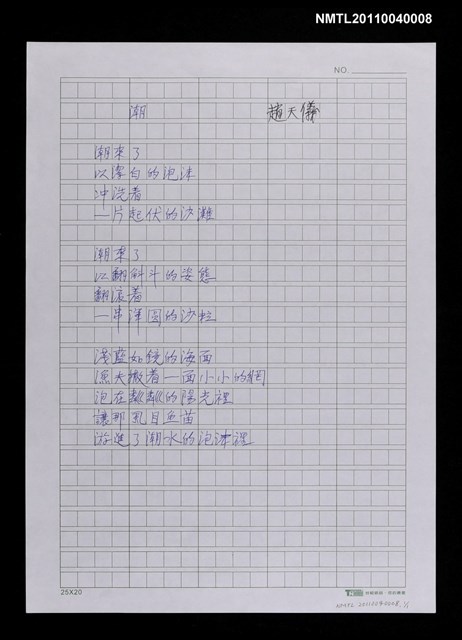 NMTL20110040008
NO.
潮　　趙天儀
潮來了
以潔白的泡沫
冲洗着
一片起伏的沙灘
潮來了
以翻斜斗的姿態
翻滾着
一串渾圓的沙粒
淺藍如鏡的海面
漁夫撒着一面小小的網
泡在粼粼的陽光裡
讓那虱目魚苗
游進了潮水的泡沫裡
25X20
NMTL 20110040008, 1/1